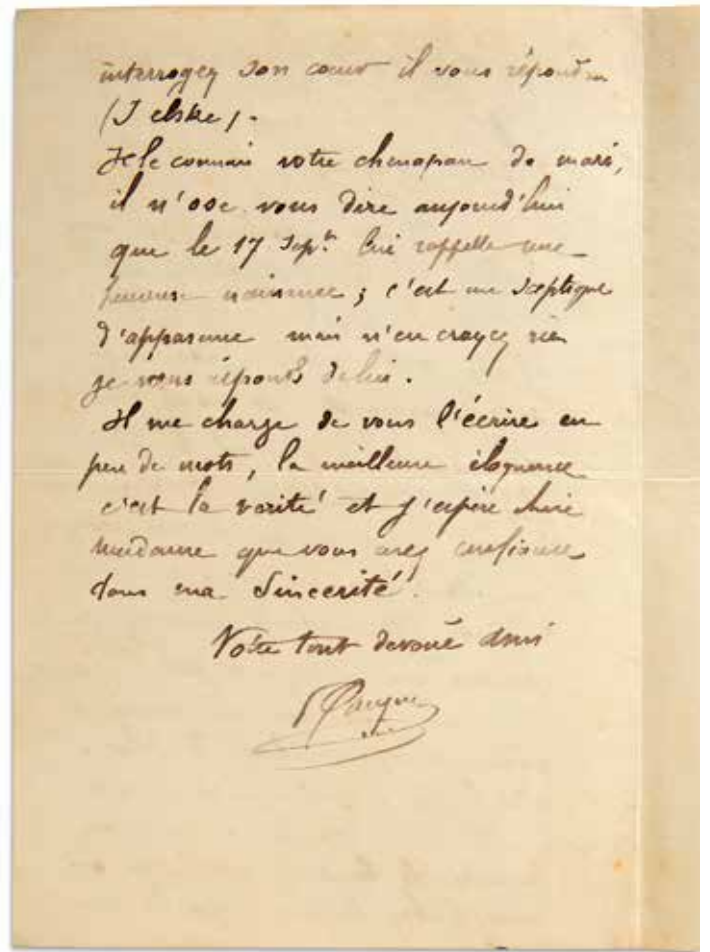 interrogez son coeur il vous répondra
(I elske).
Je le connais votre chenapan de mari,
il n'ose vous dire aujourd'hui
que le 17 Sept. lui rappelle une
heureuse naissance ; c'est un sceptique
d'apparence mais n'en croyez rien
je vous réponds de lui.
Il me charge de vous l'écrire en
peu de mots, la meilleure éloquence
c'est la vérité et j'espère chère
madame que vous avez confiance
dans ma Sincérité.
Votre tout dévoué ami